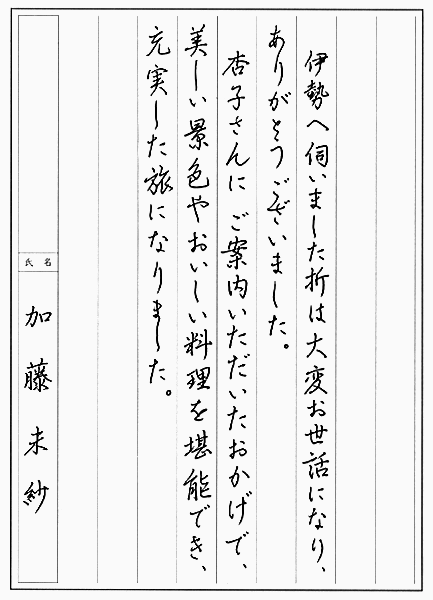 伊勢へ伺いました折は大変お世話になり、
ありがとうございました。
杏子さんにご案内いただいたおかげで、
美しい景色やおいしい料理を堪能でき、
充実した旅になりました。
氏名
加藤未紗